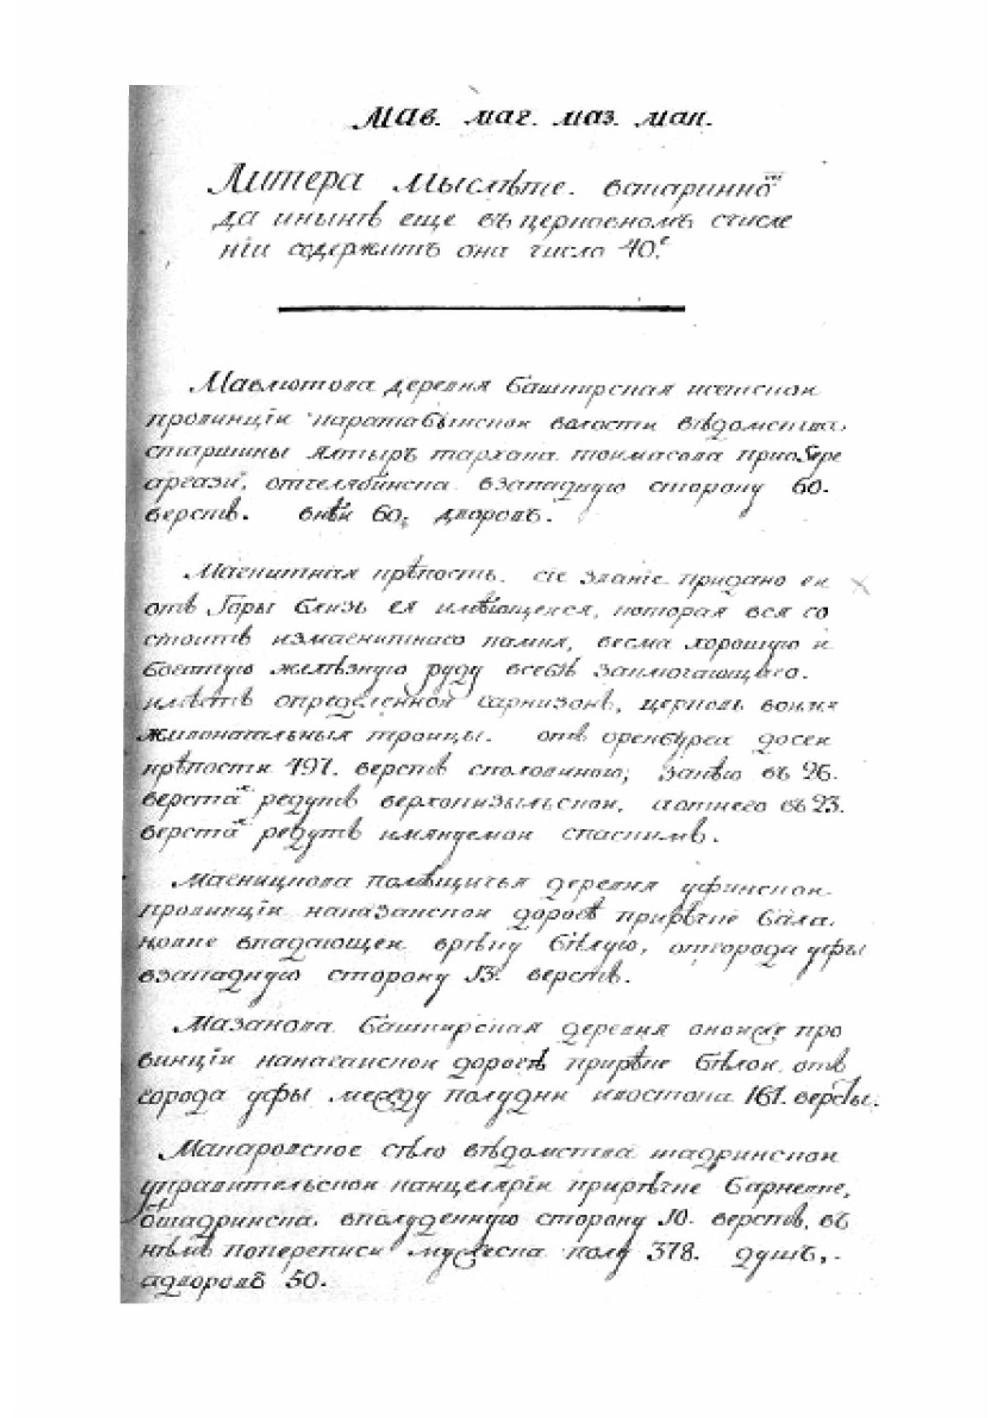 Мав. маг. маз. мак.
Литера Мыслѣте. встаринно
да инынѣ еще въ церковномъ счисле
нїи содержитъ она число 40.
Мавлютова деревня башкирская исетской
провинцїи каратабынской волости вѣдомства
старшины Ялтыръ тархана тюкмасова приозере
аргази, отчелябинска взападную сторону 60.
верстъ. внѣй 60. дворовъ.
Магнитная крѣпость. сїе званїе придано ей
отъ Горы близь ея имѣющейся, которая вся со
стоитъ измагнитнаго камня, весма хорошую и
богатую желѣзную руду всебѣ заключающаго.
имѣетъ определенной гарнизонъ, церковь во имя
живоначальныя троицы. отъ оренбурга досей
крѣпости 497. верстъ споловиною; занѣю въ 26.
верстах редутъ верхокизыльской, а отнего въ 23.
верстах редутъ имянуемой спаскимъ.
Магницкова помѣщичья деревня уфинской
провинцїи наказанской дорогѣ прирѣчке бала.
кодне впадающей врѣку бѣлую, отгорода уфы
взападную сторону 13. верстъ.
Мазанова башкирская деревня оной же про
винцїи нанагайской дорогѣ прирѣке бѣлой отъ
города уфы между полудни ивостока 161. версты.
Макаровское сѣло вѣдомства шадринской
управительской канцелярїи прирѣчке барневке,
отшадринска вполуденную сторону 10. верстъ, въ
нѣмъ попереписи мужеска полу 378. душъ,
адворовъ 50.